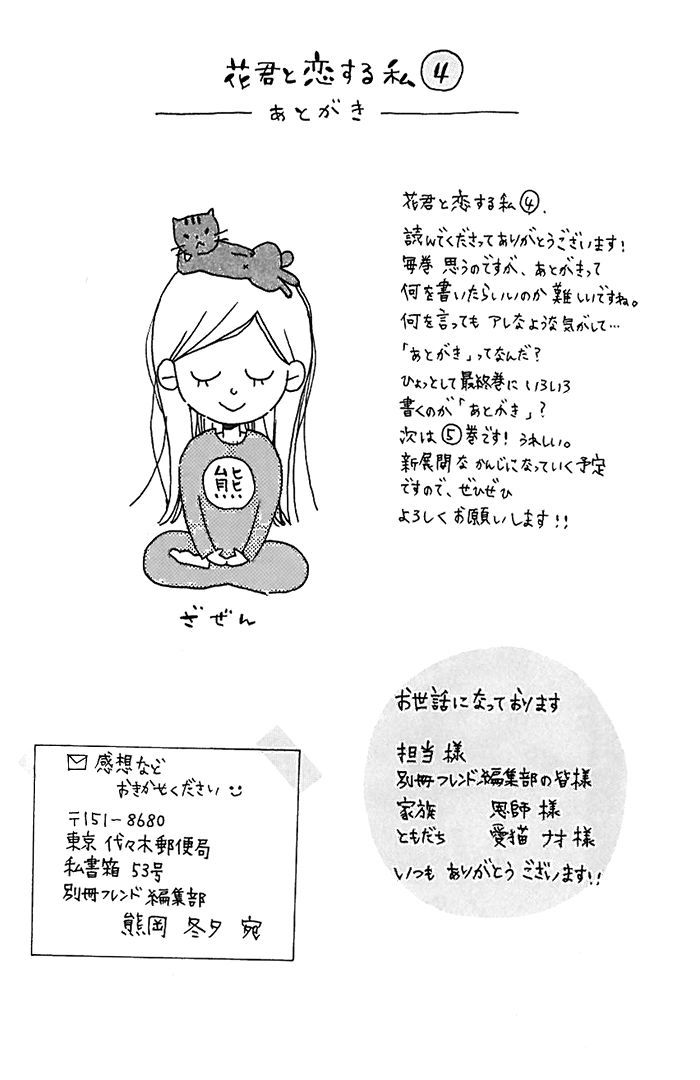 花君と恋する私 ④
あとがき
花君と恋する私④、
読んでくださってありがとうございます!
毎巻 思うのですが、あとがきって
何を書いたらいいのか 難しいですね。
何を言っても アレなような気がして…
「あとがき」ってなんだ?
ひょっとして最終巻に いろいろ
書くのが「あとがき」?
次は⑤巻です! うれしい。
新展開な かんじになっていく予定
ですので、ぜひぜひ
よろしくお願いします!!
熊
ざぜん
お世話になっております
担当様
別冊フレンド編集部の皆様
家族 恩師様
ともだち 愛猫 ナオ様
いつも ありがとう ございます!!
感想など
おきかせください
〒151-8680
東京 代々木郵便局
私書箱 53号
別冊フレンド 編集部
熊岡 冬夕 宛